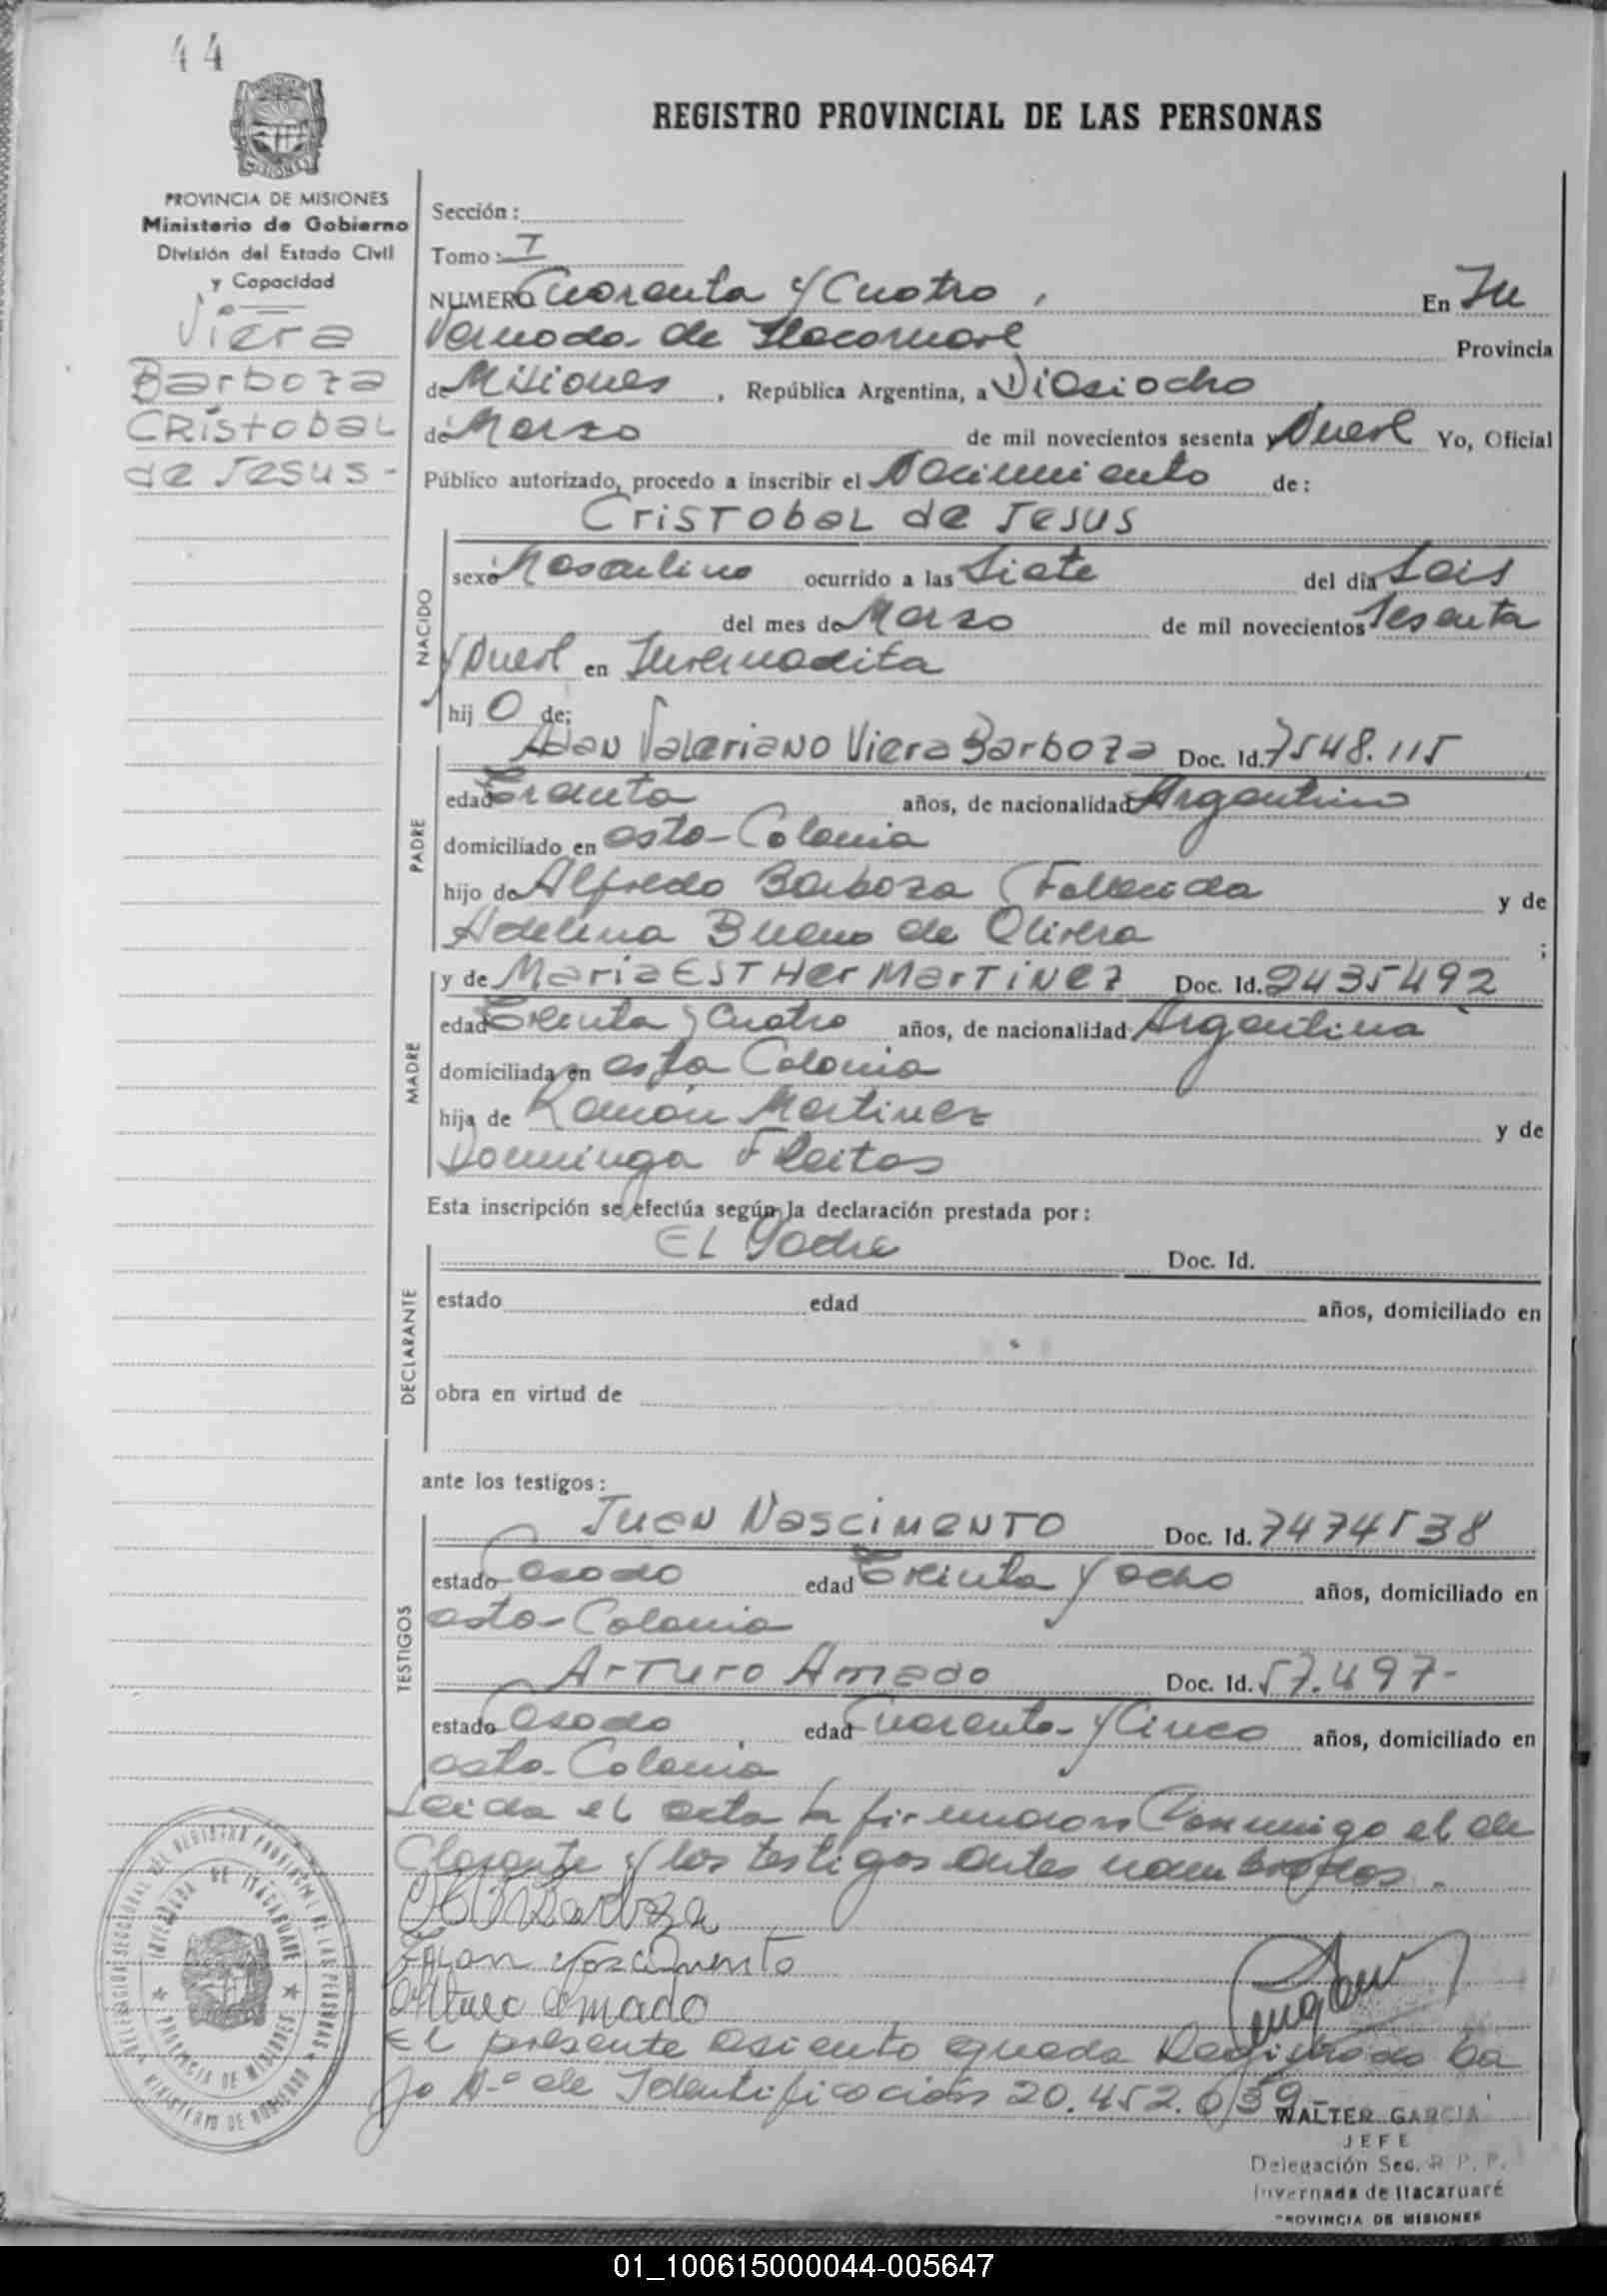 44
REGISTRO PROVINCIAL DE LAS PERSONAS
PROVINCIA DE MISIONES
Ministerio de Gobierno
División del Estado Civil
y Capacidad
Viera
Barboza
CRistobal
de Jesus-
Sección:
Tomo: I
NUMERO Cuarenta y Cuatro, En In
vernada de Itacaruaré Provincia
de Misiones, República Argentina, a Dieciocho
de Marzo de mil novecientos sesenta y Nueve Yo, Oficial
Público autorizado, procedo a inscribir el Nacimiento de:
Cristobal de Jesus
NACIDO
sexo Masculino ocurrido a las Siete del día Seis
del mes de Marzo de mil novecientos Sesenta
y Nueve en Invernadita
hijo de:
PADRE
Adan Valeriano Viera Barboza Doc. Id. 7548.115
edad Treinta años, de nacionalidad Argentino
domiciliado en esta Colonia
hijo de Alfredo Barboza (Fallecido y de
Adelina Bueno de Olivera ;
MADRE
y de Maria ESTHer MarTiNez Doc. Id. 2435492
edad Treinta y Cuatro años, de nacionalidad Argentina
domiciliada en esta Colonia
hija de Ramón Martinez y de
Dominga Fleitas
Esta inscripción se efectúa según la declaración prestada por:
DECLARANTE
El Padre Doc. Id.
estado edad años, domiciliado en
obra en virtud de
ante los testigos:
TESTIGOS
Juan Nascimento Doc. Id. 7474538
estado Casado edad Treinta y ocho años, domiciliado en
esta Colonia
Arturo Amado Doc. Id. 57.497-
estado Casado edad Cuarenta y Cinco años, domiciliado en
esta Colonia
Leida el acta la firmaron Conmigo el de
Clarante y los testigos antes nombrados.
Barboza
Juan Nascimento
Arturo Amado
El presente asiento queda Registrado ba
jo N.º de Identificación 20.452.639-
DELEGACION SECCIONAL DEL REGISTRO PROVINCIAL DE LAS PERSONAS
INVERNADA DE ITACARUARE
PROVINCIA DE MISIONES
MINISTERIO DE GOBIERNO
WALTER GARCIA
JEFE
Delegación Sec. R. P. P.
Invernada de Itacaruaré
PROVINCIA DE MISIONES
01_100615000044-005647